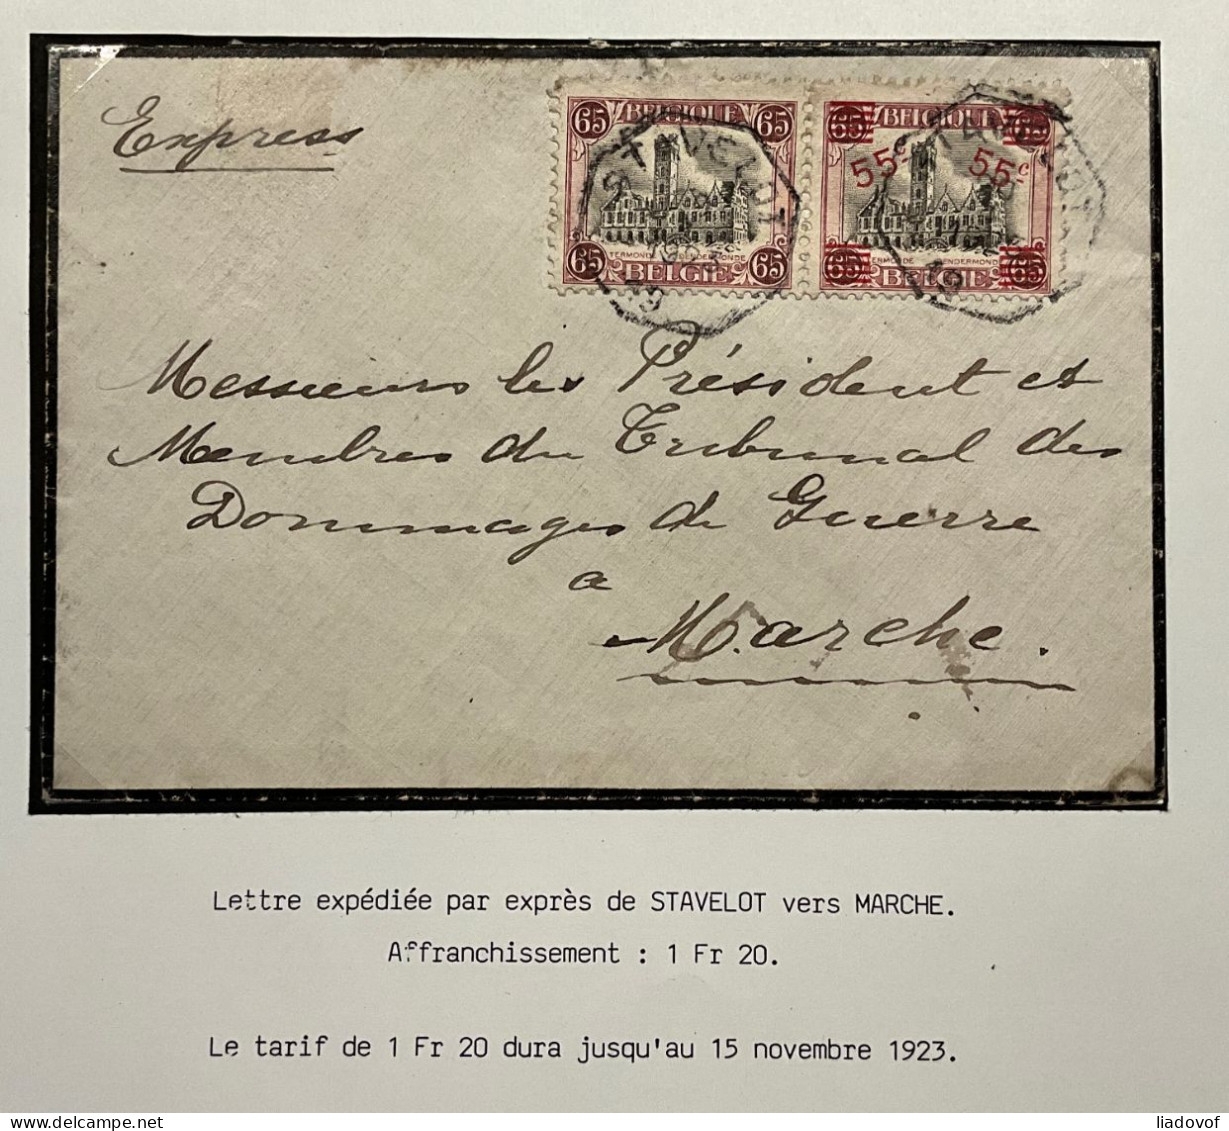 Express
65 BELGIQUE 65
TERMONDE DENDERMONDE
65 BELGIE 65
65 BELGIQUE 65
55c 55c
TERMONDE DENDERMONDE
65 BELGIE 65
STAVELOT
STAVELOT
Messieurs les Président et
Membres du Tribunal des
Dommages de Guerre
a
Marche.
Lettre expédiée par exprès de STAVELOT vers MARCHE.
Affranchissement : 1 Fr 20.
Le tarif de 1 Fr 20 dura jusqu'au 15 novembre 1923.
liadovof